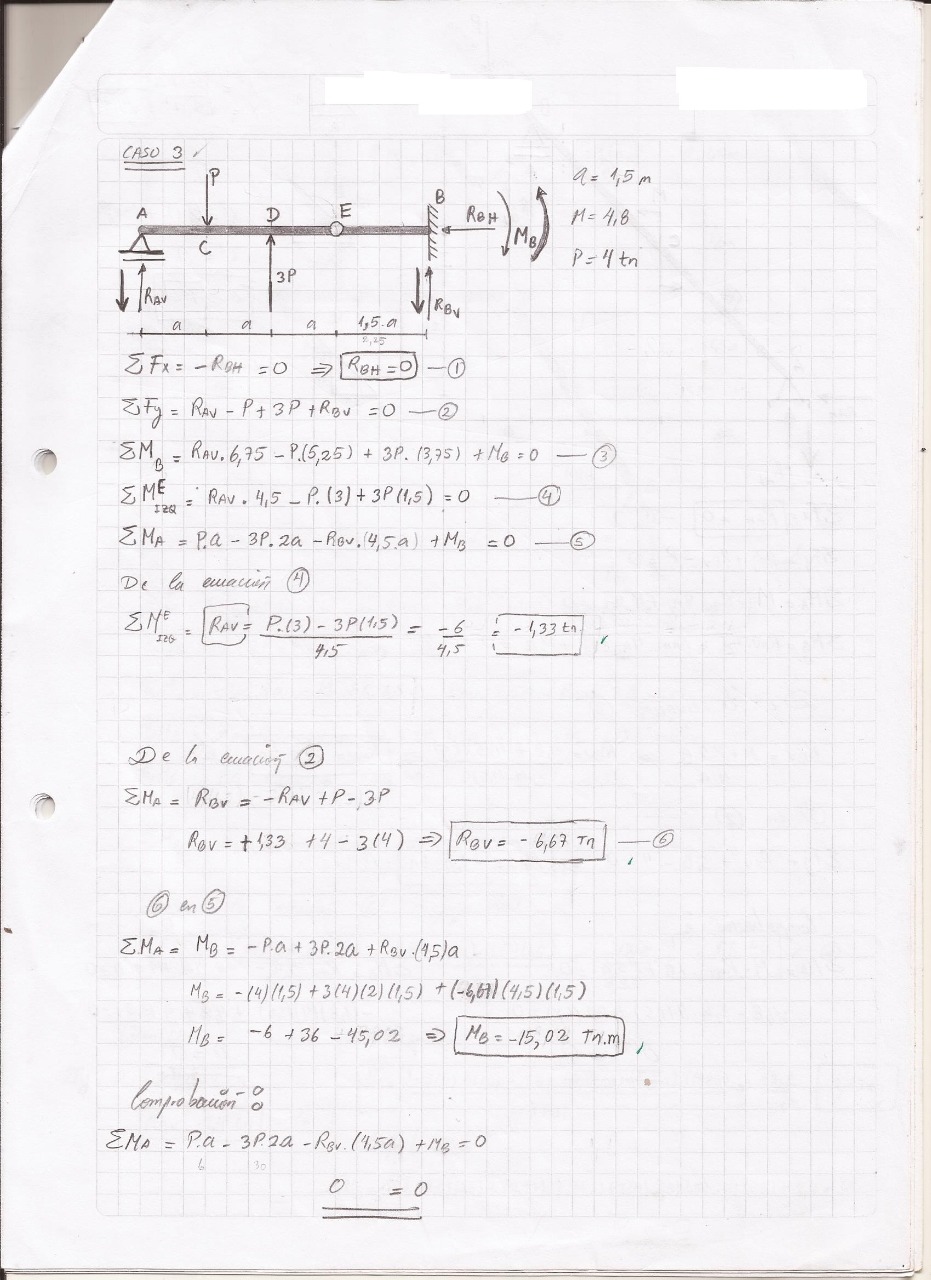 CASO 3
P
a = 1,5 m
A
D
E
B
RBH
MB
M = 4,8
C
P = 4 tn
3P
RAV
RBV
a
a
a
1,5.a
2,25
ΣFx = -RBH = 0 ⇒ RBH = 0 — ①
ΣFy = RAV - P + 3P + RBV = 0 — ②
ΣMB = RAV. 6,75 - P.(5,25) + 3P. (3,75) + MB = 0 — ③
ΣM^E_IZQ = RAV . 4,5 - P. (3) + 3P (1,5) = 0 — ④
ΣMA = P.a - 3P.2a - RBV. (4,5.a) + MB = 0 — ⑤
De la ecuación ④
ΣM^E_IZQ = RAV = P.(3) - 3P(1,5) / 4,5 = -6 / 4,5 = -1,33 tn
De la ecuación ②
ΣMA = RBV = -RAV + P - 3P
RBV = +1,33 + 4 - 3(4) ⇒ RBV = - 6,67 Tn — ⑥
⑥ en ⑤
ΣMA = MB = -P.a + 3P.2a + RBV.(4,5)a
MB = -(4)(1,5) + 3(4)(2)(1,5) + (-6,67)(4,5)(1,5)
MB = -6 + 36 - 45,02 ⇒ MB = -15,02 Tn.m
Comprobación:
ΣMA = P.a - 3P.2a - RBV. (4,5a) + MB = 0
6 30
0 = 0